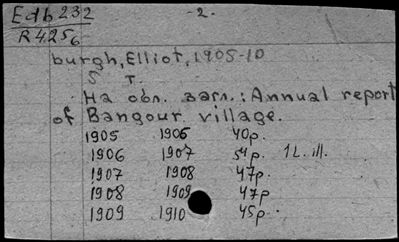 Edb 232 -2.-
R4256
burgh, Elliot, 1905-10
5 т.
На обл. загл.: Annual report
of Bangour village.
1905 1906 40p.
1906 1907 54p. 1 L. ill.
1907 1908 47p.
1908 1909 47p
1909 1910 45p